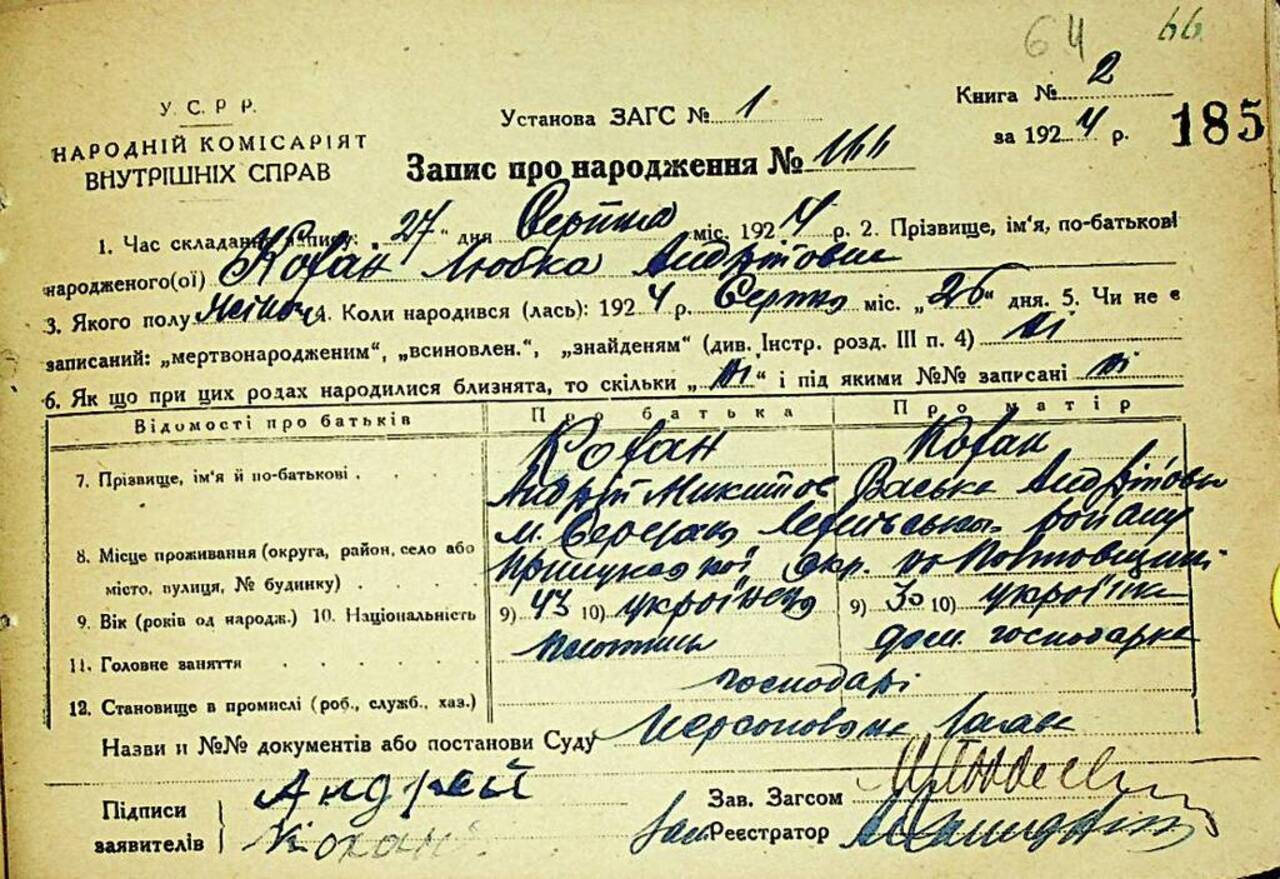 64 66
У. С. Р. Р.
НАРОДНІЙ КОМІСАРІЯТ
ВНУТРІШНІХ СПРАВ
Установа ЗАГС № 1
Книга № 2
за 1924 р. 185
Запис про народження № 166
1. Час складання запису: „27“ дня Серпня міс. 1924 р. 2. Прізвище, ім‘я, по-батькові
народженого(ої) Кохан Любка Андріївна
3. Якого полу жіноч 4. Коли народився (лась): 1924 р. Серпня міс. „26“ дня. 5. Чи не є
записаний: „мертвонародженим“, „всиновлен.“, „знайденям“ (див. Інстр. розд. III п. 4) ні
6. Як що при цих родах народилися близнята, то скільки „ні“ і під якими №№ записані ні
Відомості про батьків Про батька Про матір
7. Прізвище, ім‘я й по-батькові Кохан Кохан
Андрій Микитов Васька Андріївна
8. Місце проживання (округа, район, село або м. району
місто, вулиця, № будинку) Прилуцької окр. на Полтовщині
9. Вік (років од народж.) 10. Національність 9) 43 10) українець 9) 30 10) українка
11. Головне заняття дом. господарка
12. Становище в промислі (роб., служб., хаз.) господарі
Назви и №№ документів або постанови Суду
Підписи
заявителів
Андрей
Кохан
Зав. Загсом
Реєстратор